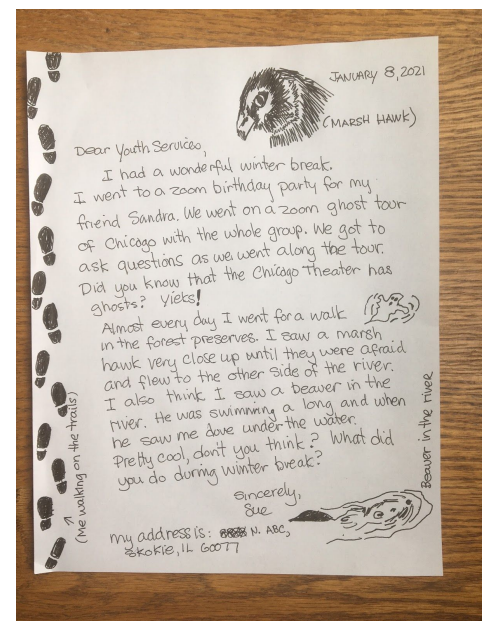 JANUARY 8, 2021
(MARSH HAWK)
Dear Youth Services,
I had a wonderful winter break.
I went to a zoom birthday party for my
friend Sandra. We went on a zoom ghost tour
of Chicago with the whole group. We got to
ask questions as we went along the tour.
Did you know that the Chicago Theater has
ghosts? Yieks!
Almost every day I went for a walk
in the forest preserves. I saw a marsh
hawk very close up until they were afraid
and flew to the other side of the river.
I also think I saw a beaver in the
river. He was swimming a long and when
he saw me dove under the water.
Pretty cool, don't you think? What did
you do during winter break?
Sincerely,
Sue
my address is: N. ABC,
Skokie, IL 60077
(Me walking on the trails)
Beaver in the river